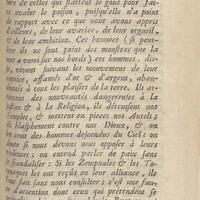 ture de celles qui flattent le goût pour fai-
re avaler le poison, puisqu'elle n'a point
de rapport avec ce que nous avons appris
d'ailleurs, de leur avarice, de leur orgueil,
& de leur ambition. Ces hommes (si peut-
être ils ne sont point des monstres que la
mer a vomi sur nos bords) ces hommes, dis-
je, vivent suivant les mouvemens de leur
caprice, affamés d'or & d'argent, aban-
donnés à tous les plaisirs de la terre. Ils at-
tentent des nouveautés dangereuses à la
Justice & à la Religion, ils détruisent nos
Temples, & mettent en pieces nos Autels;
ils blasphément contre nos Dieux, & on
les croit des hommes descendus du Ciel! on
doute si nous devons nous opposer à leurs
violences; on entend parler de paix sans
se scandaliser! Si les Zempoales & les To-
naques les ont reçus en leur alliance, ils
l'ont fait sans nous consulter; c'est une fau-
te d'attention dont ceux qui prétendent se